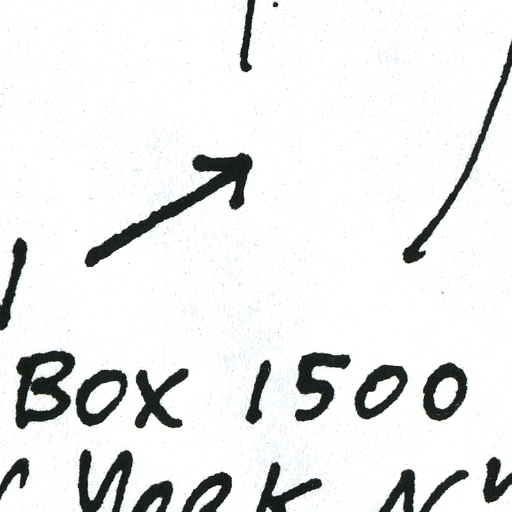 BOX 1500
YORK NY